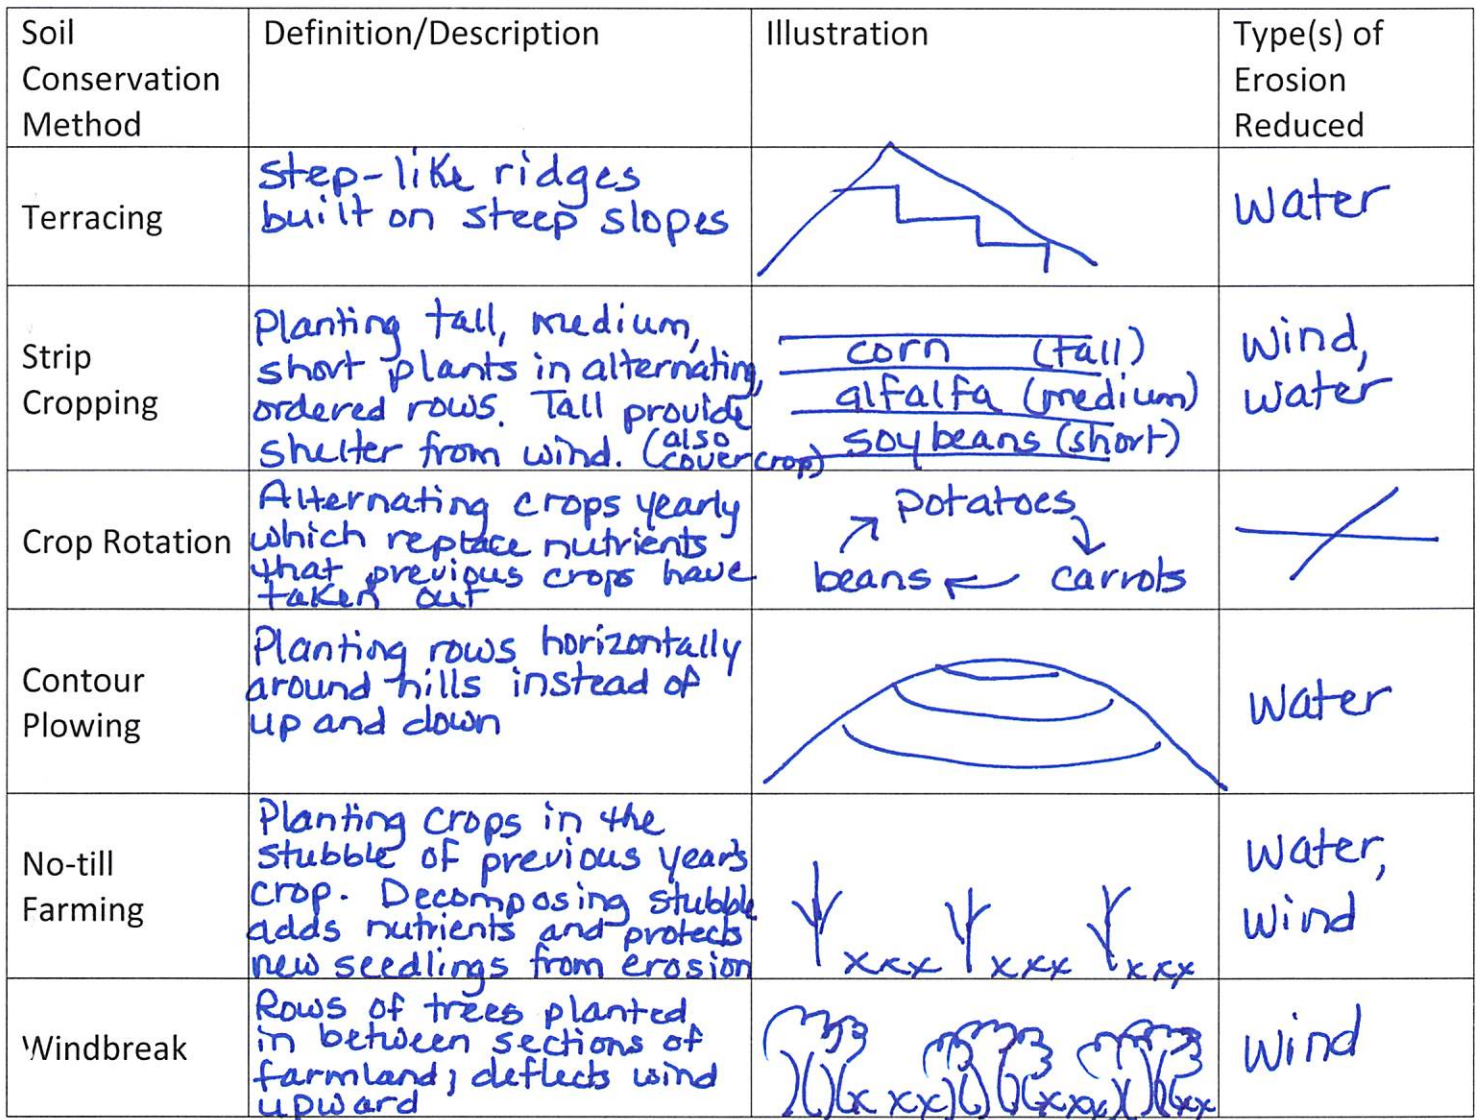 Soil
Conservation
Method
Definition/Description
Illustration
Type(s) of
Erosion
Reduced
Terracing
Step-like ridges
built on steep slopes
Water
Strip
Cropping
Planting tall, medium,
short plants in alternating,
ordered rows. Tall provide
shelter from wind. (also
cover crop)
corn (tall)
alfalfa (medium)
soybeans (short)
Wind,
water
Crop Rotation
Alternating crops yearly
which replace nutrients
that previous crops have
taken out
potatoes
beans
carrots
Contour
Plowing
Planting rows horizontally
around hills instead of
up and down
Water
No-till
Farming
Planting crops in the
stubble of previous year's
crop. Decomposing stubble
adds nutrients and protects
new seedlings from erosion
xxx xxx xxx
Water,
Wind
Windbreak
Rows of trees planted
in between sections of
farmland; deflects wind
upward
x xx xxx xx
Wind